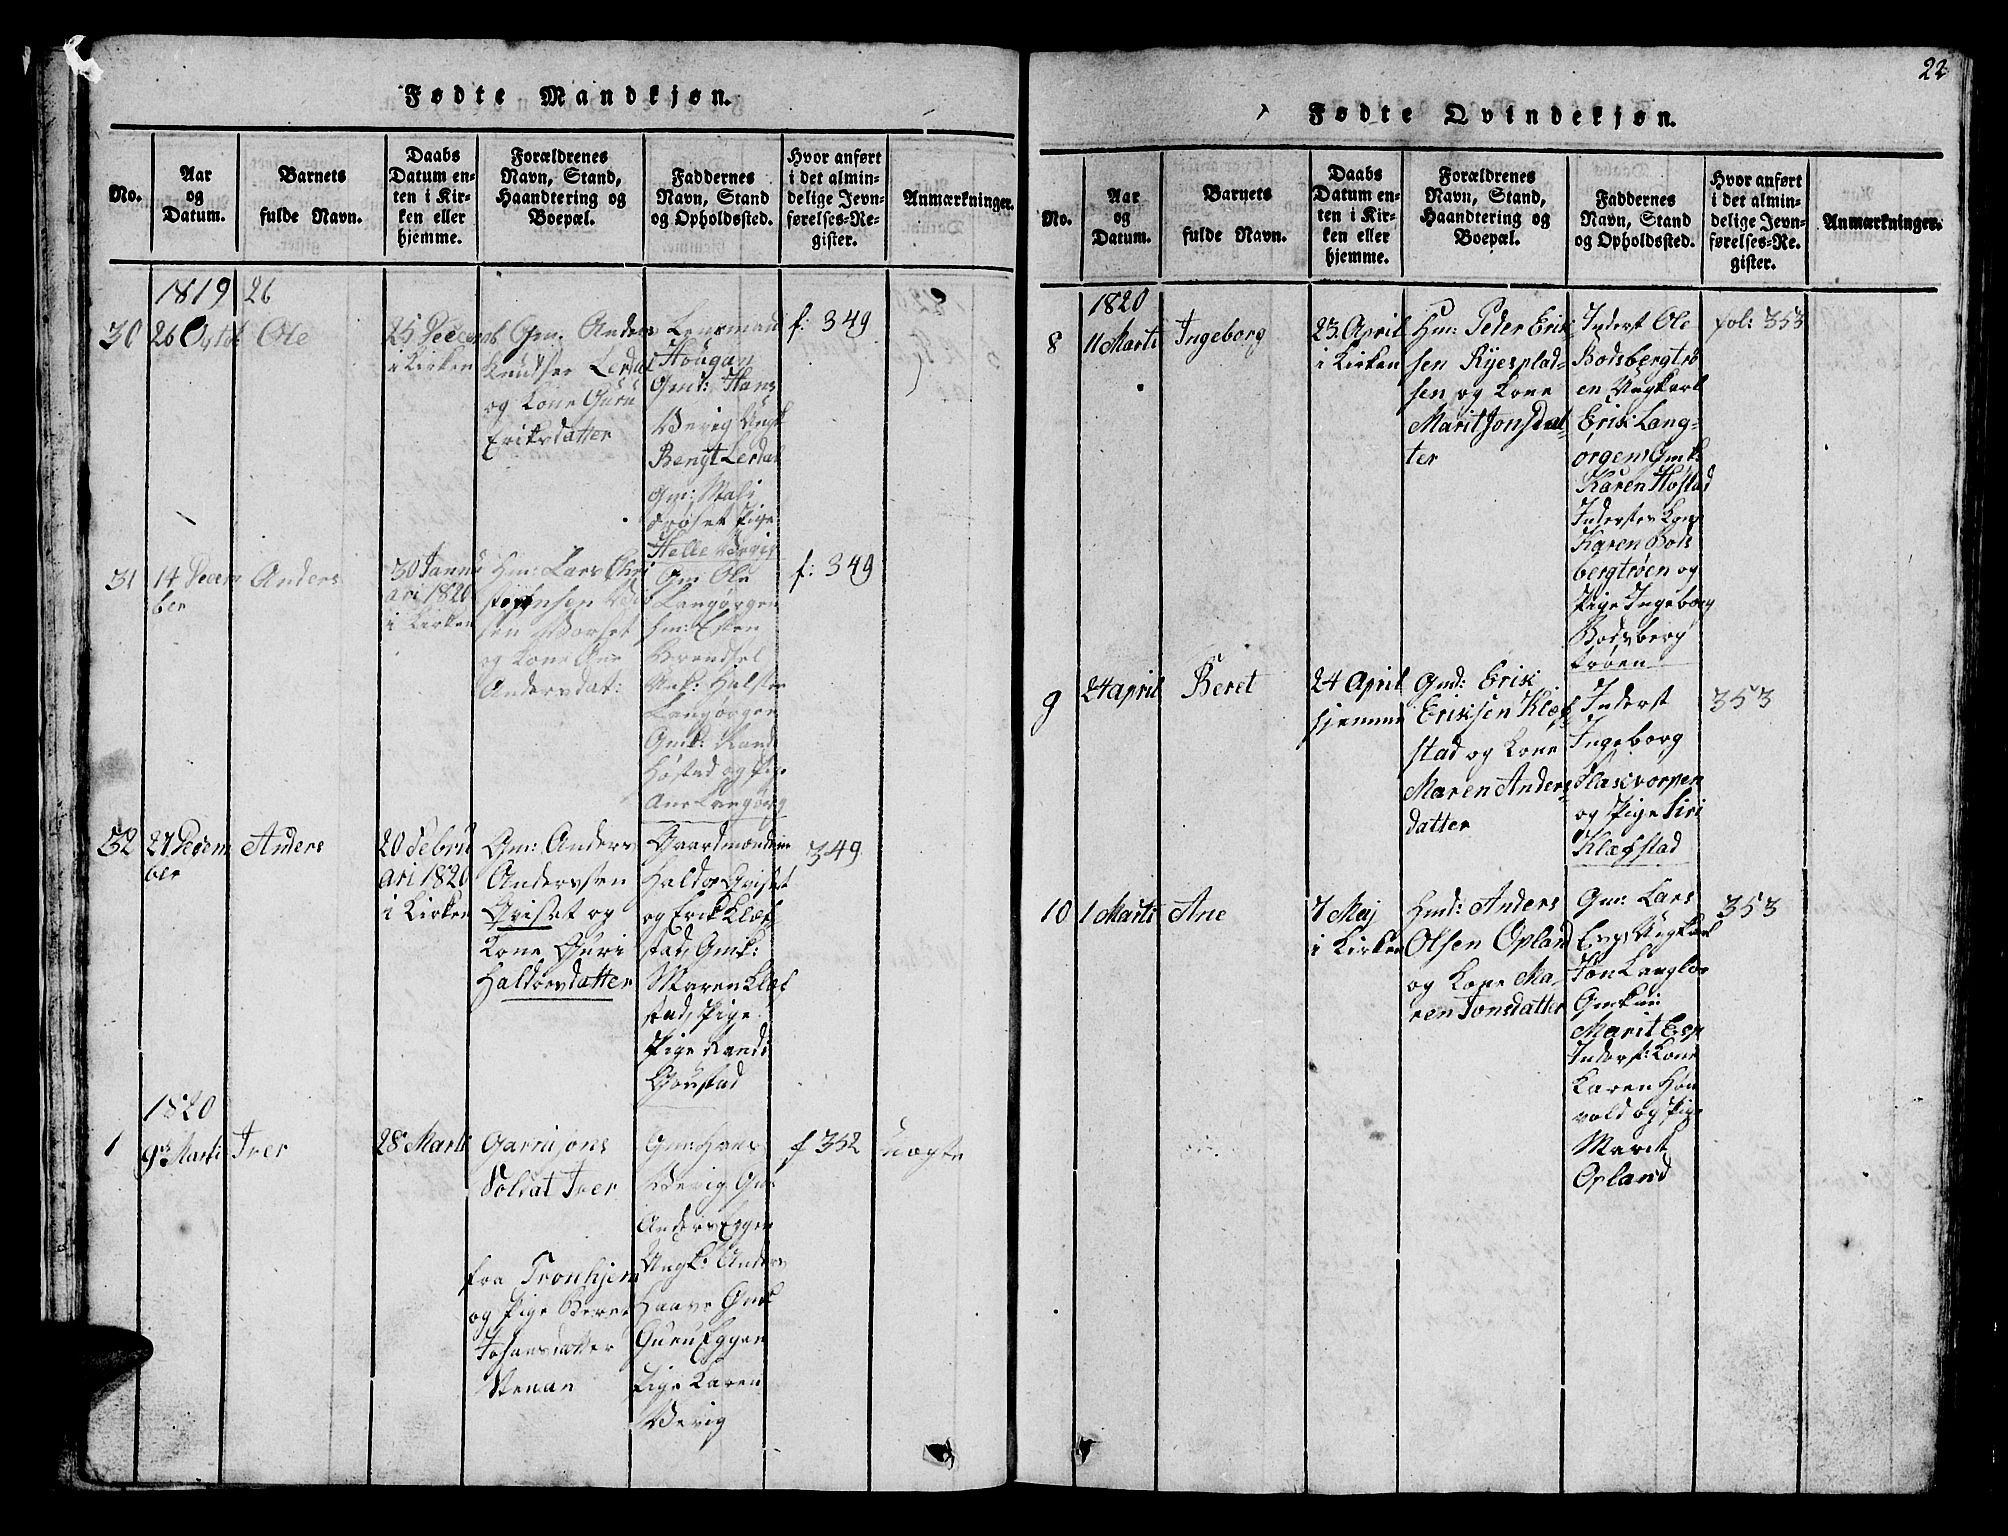 Fødte Mandkjøn.
No.
Aar
og
Datum.
Barnets
fulde Navn.
Daabs
Datum en-
ten i Kir-
ken eller
hjemme.
Forældrenes
Navn, Stand,
Haandtering og
Boepæl.
Faddernes
Navn, Stand
og Opholdssted.
Hvor anført
i det almin-
delige Jevn-
førelses-Re-
gister.
Anmærkninger.
1819 26
30
26 Octbr
Ole
25 Decemb
i Kirken
Gm. Anders
Knudsen Lerdal
og Kone Guru
Eriksdatter
Lensmand
Hougan
Gmd: Hans
Werig Ungk
Bengt Lerdal
Gm:
Pige
Helle
f: 349
31
14 Decem
ber
Anders
30 Janu
ari 1820
i Kirken
Hm: Lars Chri
stensen
sen
og Kone Ane
Andersdat:
Gm Ole
Langørgen
Hm: Esten
Brendsel
Unk: Halsten
Langørgen
Gmk: Rand
Høstad og Pige
Ane Langørg
f: 349
32
27 Decem
ber
Anders
20 Febru
ari 1820
i Kirken
Gm: Anders
Andersen
Qviset og
Kone Guri
Haldorsdatter
Gaardmændene
Haldor Qviset
og Erik Klæf
stad, Gmk:
Maren Klæf
stad, Pige
Pige Rand
Goustad
349
1820
1
9de Marti
Iver
28 Marti
Garnisons
Soldat Iver
fra Tronhjem
og Pige Beret
Johansdatter
Stenan
Gm Hans
Werig Gm
Anders Eggen
Ungk: Anders
Haave Gmk
Guru Eggen
Pige Karen
Werig
f 352
uægte
22
Fødte Qvindekjøn.
No.
Aar
og
Datum.
Barnets
fulde Navn.
Daabs
Datum en-
ten i Kir-
ken eller
hjemme.
Forældrenes
Navn, Stand,
Haandtering og
Boepæl.
Faddernes
Navn, Stand
og Opholdssted.
Hvor anført
i det almin-
delige Jevn-
førelses-Re-
gister.
Anmærkninger.
1820
8
11 Marti
Ingeborg
23 April
i Kirken
Hm: Peder Erik
sen Ryesplad-
sen og Kone
Marit Jonsdat-
ter
Inderst Ole
Bodsbergtrø
en Ungkarl
Erik Lang-
ørgen, Gmk:
Karen Høstad
Inderstes Kone
Karen Bods
bergtrøen og
Pige Ingeborg
Bodsberg
trøen
fol: 353
9
24 april
Beret
24 April
hjemme
Gmd: Erik
Eriksen Klæf
stad og Kone
Maren Anders
datter
Inderst
Ingeborg
Flaxvorpen
og Pige Siri
Klæfstad
353
10
1 Marti
Ane
7 Maj
i Kirken
Hmd: Anders
Olsen Opland
og Kone Ma-
ren Jonsdatter
Gm: Lars
Esp, Ungkarl
Jon Langloe
Gmkone
Marit Esp
Inderst: Kone
Karen Høn
vold og Pige
Marit
Opland
353